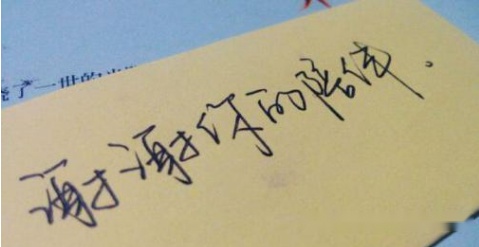 了一世的
谢谢你的陪伴。